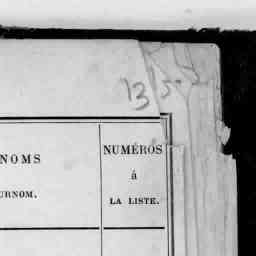 13
NOMS
URNOM.
NUMÉROS
á
LA LISTE.